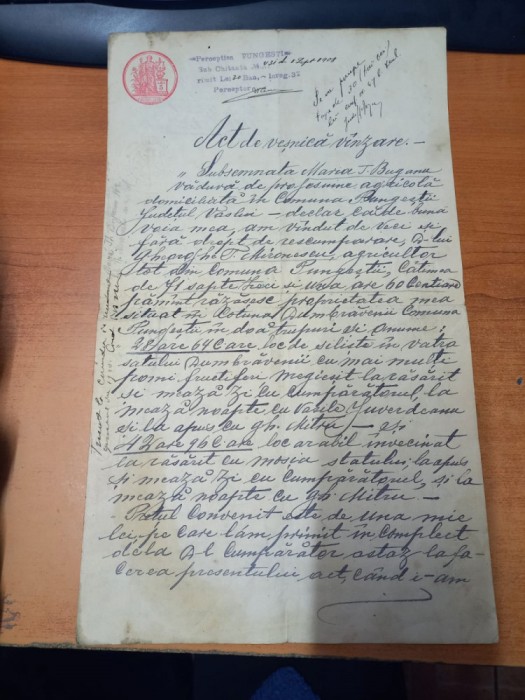 Percepția PUNGEȘTI
Sub Chitanța №
Perceptor
Act de veșnică vînzare.—
„Subsemnata Maria T. Bugeanu
văduvă de profesiune agricolă
domiciliată în Comuna Pungești
Județul Vaslui — declar că de bună
voia mea, am vîndut de veci și
fără drept de rescumpărare, D-lui
Gheorghe T. Mironescu, agricultor
tot din comuna Pungești, Câtimea
de 71 șapte zeci și unu are 60 centiare
pămînt răzășesc proprietatea mea
situat în Cotuna Dumbrăvenii Comuna
Pungești în două trupuri și anume;
28 are 64 C. are loc de seliște în vatra
satului Dumbrăvenii cu mai mulți
pomi fructiferi megieșit la răsărit
și mează zi cu Cumpărătorul, la
mează noapte cu Vasile Iuverdeanu
și la apus cu gh. Mitru — și
42 are 96 C. are loc arabil învecinat
la răsărit cu moșia statului, la apus
și mează zi cu Cumpărătorul, și la
mează noapte cu gh. Mitru.—
Prețul Convenit este de una mie
lei, pe care i-am primit în complect
de la D-l Cumpărător astăz la fa-
cerea presentului act, când i-am